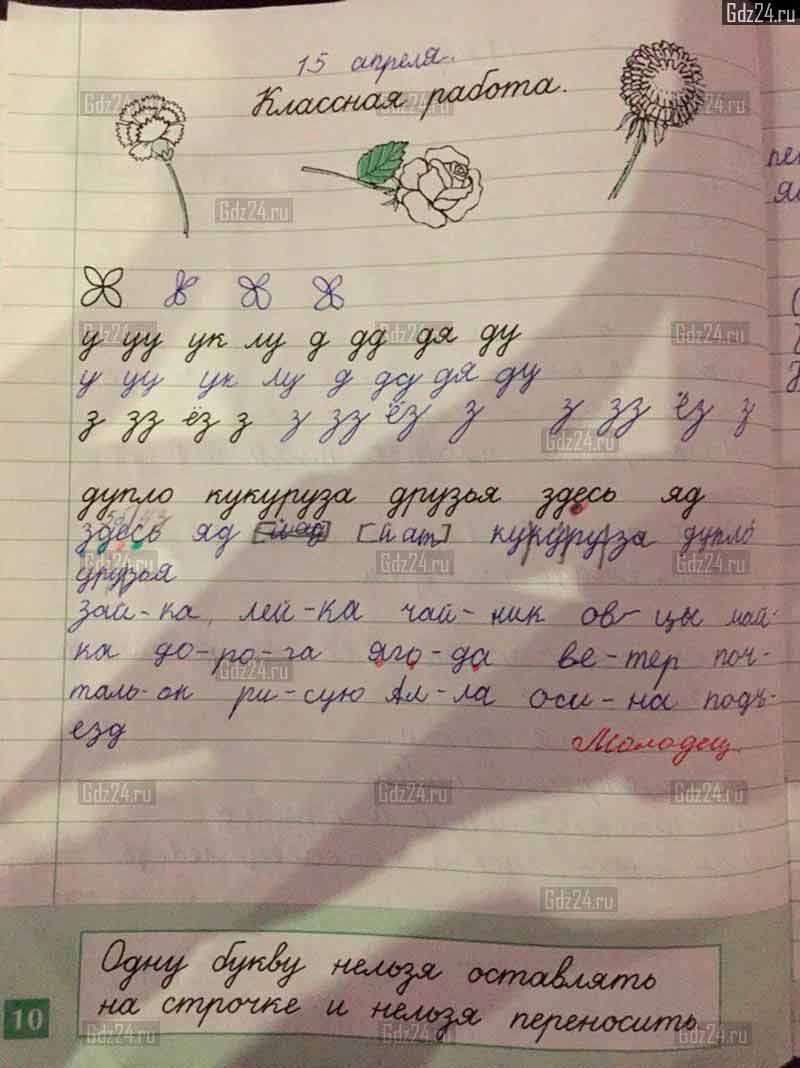 Gdz24.ru
15 апреля.
Классная работа.
у уу ук лу д дд дя ду
у уу ук лу д дд дя ду
з зз ёз з з зз ёз з з зз ёз з
дупло кукуруза друзья здесь яд
здесь яд [йат] кукуруза дупло
друзья
зай-ка, лей-ка чай-ник ов-цы май-
ка до-ро-га яго-да ве-тер поч-
таль-он ри-сую Ал-ла оси-на подъ-
езд
Молодец.
Одну букву нельзя оставлять
на строчке и нельзя переносить.
10